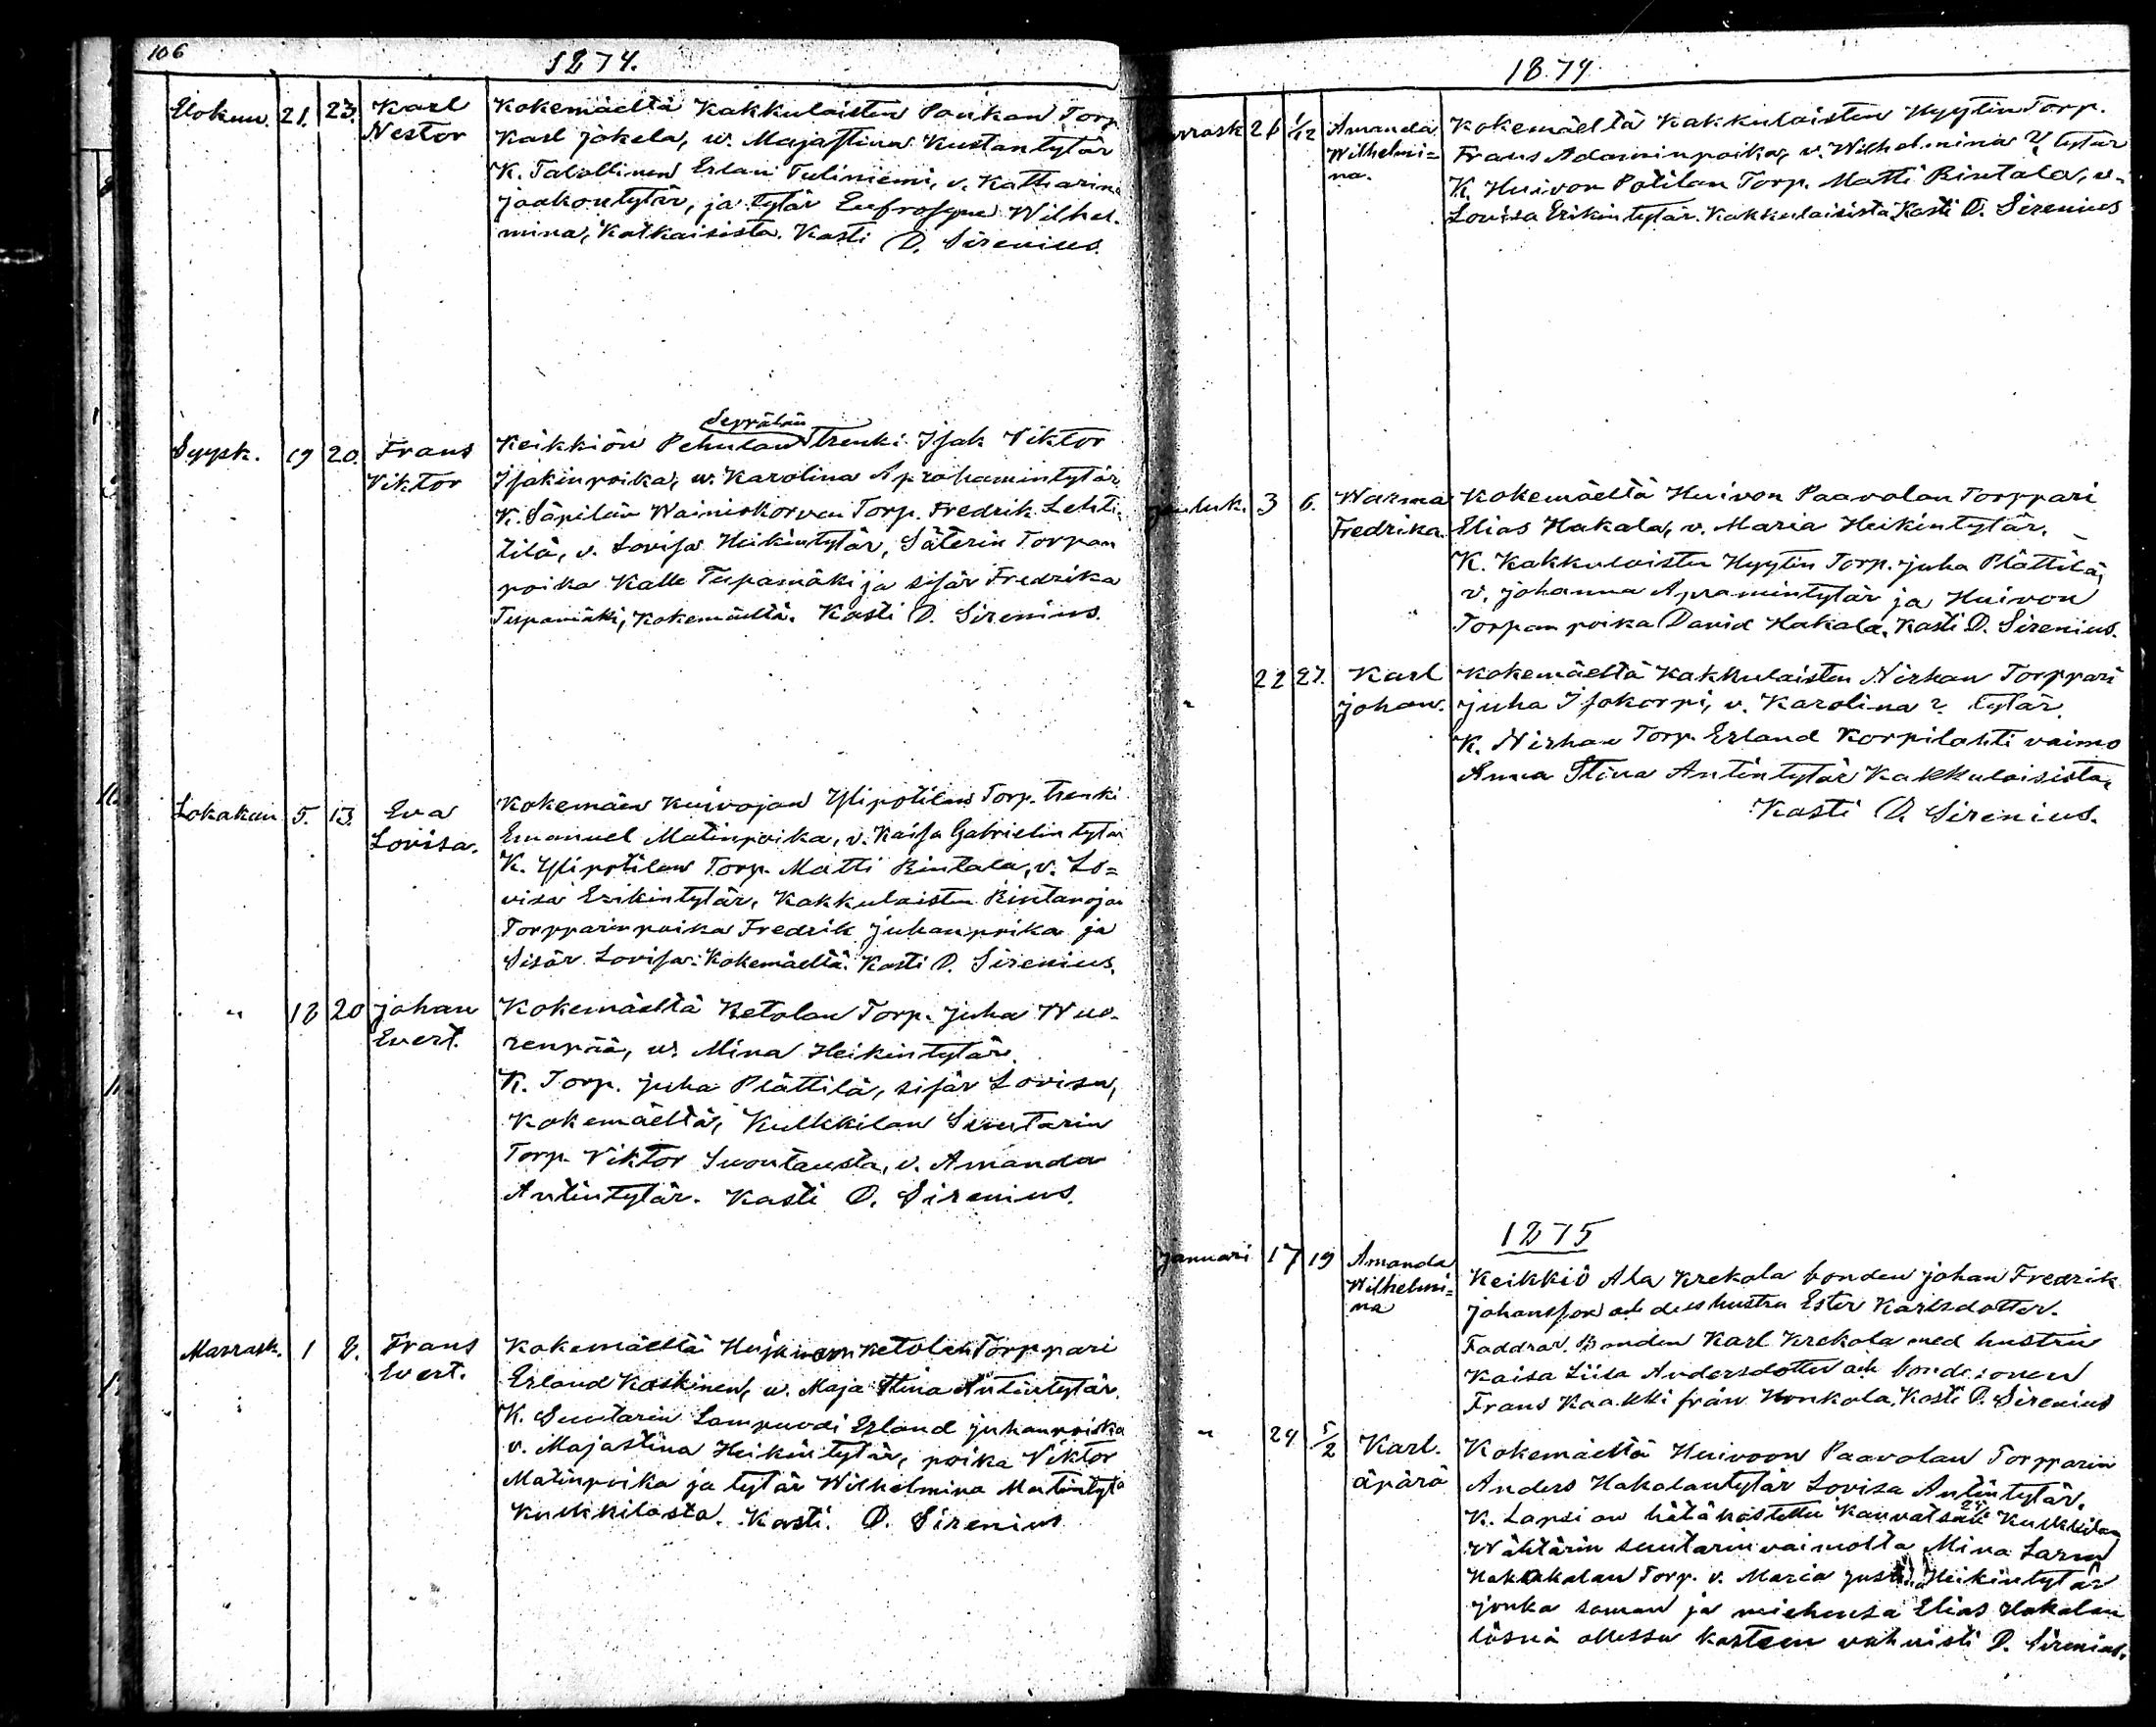 106
1874.
Elokuu. 21. 23. Karl Nestor
Kokemäeltä Kakkulaisten Paukan Torp
Karl jokela, w. Majastina Kustantytär
K. Talollinen Erlan Tuliniemi, v. Katharina
jaakontytär, ja tytär Eufrosyne Wilhel-
mina, Katkaisista. Kasti D. Sirenius.
Syysk. 19 20. Frans Viktor
Seppälän
Keikkiön Pehulan trenki Isak Viktor
Isakinpoika, w. Karolina Aprahamintytär
K. Säpilän Wainiokorven Torp. Fredrik Lehti-
tilä, v. Lovisa Heikintytär, Säterin Torpan
poika Kalle Tupamäki ja sisär Fredrika
Tupamäki, Kokemäeltä. Kasti D. Sirenius.
Lokakuu 5. 13. Eva Lovisa.
Kokemäen Kuivojan Ylipotilan Torp. trenki
Emanuel Matinpoika, v. Kaisa Gabrielintytär
K. Ylipotilan Torp. Matti Rintala, v. Lo=
visa Erikintytär, Kakkulaisten Rintanojan
Torpparinpoika Fredrik Juhanpoika ja
Sisär Lovisa: Kokemäeltä. Kasti D. Sirenius.
" 18 20 johan Evert.
Kokemäeltä Ketolan Torp. juha Wuo-
renpää, w. Mina Heikintytär.
K. Torp. juha Plättilä, sisär Lovisa,
Kokemäeltä, Kulkkilan Suutarin
Torp. Viktor Suontausta, v. Amanda
Antintytär. Kasti D. Sirenius.
Marrask. 1 8. Frans Evert.
Kokemäeltä Ketolan Torppari
Erland Koskinen, w. Maja Stina Antintytär.
K. Suutarin Lampuodi Erland juhanpoika
v. Majastina Heikintytär, poika Viktor
Matinpoika ja tytär Wilhelmina Matintyt
Kulkkilasta. Kasti. D. Sirenius
1874
rrask 26 1/12 Amanda Wilhelmi= na.
Kokemäeltä Kakkulaisten Hyytin Torp.
Frans Adaminpoika, v. Wilhelmina ? tytär
K. Huivon Potilan Torp. Matti Rintala, v.
Lovisa Erikintytär. Kakkulaisista Kasti D. Sirenius
jouluk. 3 6. Warma Fredrika.
Kokemäeltä Huivon Paavolan Torppari
Elias Hakala, v. Maria Heikintytär.
K. Kakkulaisten Hyytin Torp. juha Plättilä,
v. johanna Apramintytär ja Huivon
Torpan poika David Hakala, Kasti D. Sirenius.
" 22 27. Karl johan.
Kokemäeltä Kakkulaisten Nirhan Torppari
juha Isokorpi, v. Karolina ? tytär.
K. Nirhan Torp. Erland Korpilahti vaimo
Anna Stina Antintytär Kakkulaisista,
Kasti D. Sirenius.
1875
januari 17 19 Amanda Wilhelmi= na
Keikkiö Ala Krekola bonden johan Fredrik
johansson och dess hustru Ester Karlsdotter.
Faddrar. Bonden Karl Krekola med hustru
Kaisa Liisa Andersdotter och bondesonen
Frans Kaakki från Honkola, Kasti D. Sirenius
" 24 5/2 Karl. äpärä
Kokemäeltä Huivoon Paavolan Torpparin
Anders Hakalantytär Lovisa Antintytär.
K. Lapsi on hätäkastettu Kauvatsan Kulkkilan
Wähtärin suutarin vaimolta Mina Larin
Hakakalan Torp. v. Maria Heikintytär
jonka saman ja miehensä Elias Hakalan
läsnä ollessa kasteen vahvisti D. Sirenius.